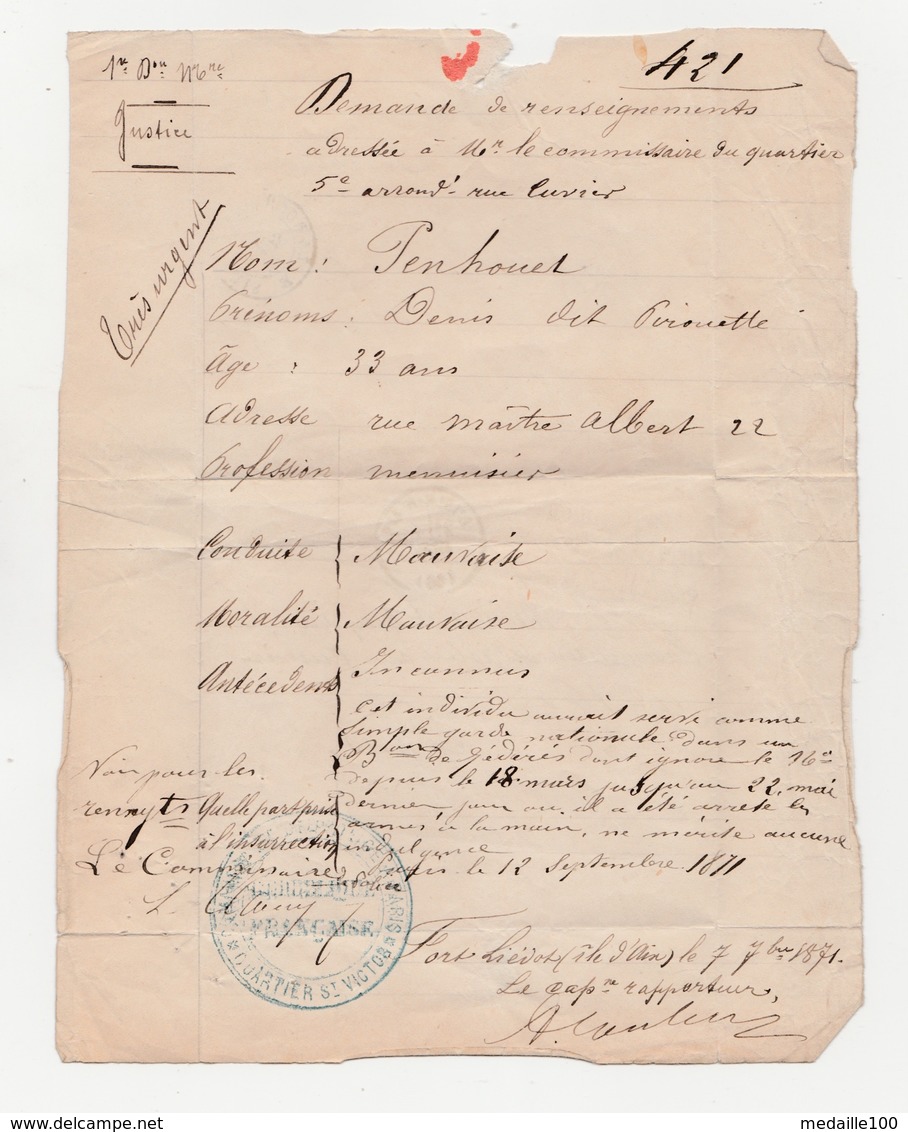 1re Don Mtre
421
Justice
Demande de renseignements
adressée à Mr. le commissaire du quartier
5e arrondt rue Cuvier
Très urgent
Nom : Penhouet
Prénoms : Denis dit Pirouette
Âge : 33 ans
Adresse rue maître Albert 22
Profession menuisier
Conduite Mauvaise
Moralité Mauvaise
Antécédents Inconnus
Cet individu aurait servi comme
simple garde nationale dans un
Bon de fédérés dont ignore le No
depuis le 18 mars jusqu'au 22 mai
dernier jour où il a été arrêté les
armes à la main, ne mérite aucune
indulgence
Quelle part prise
à l'insurrection
Paris le 12 Septembre 1871
Voir pour les
rensgts
Le Commissaire
de police
RÉPUBLIQUE
FRANÇAISE
PARIS
QUARTIER ST VICTOR
Fort Liédot (île d'Aix) le 7 7bre 1871.
Le capne rapporteur,
medaille100
www.delcampe.net